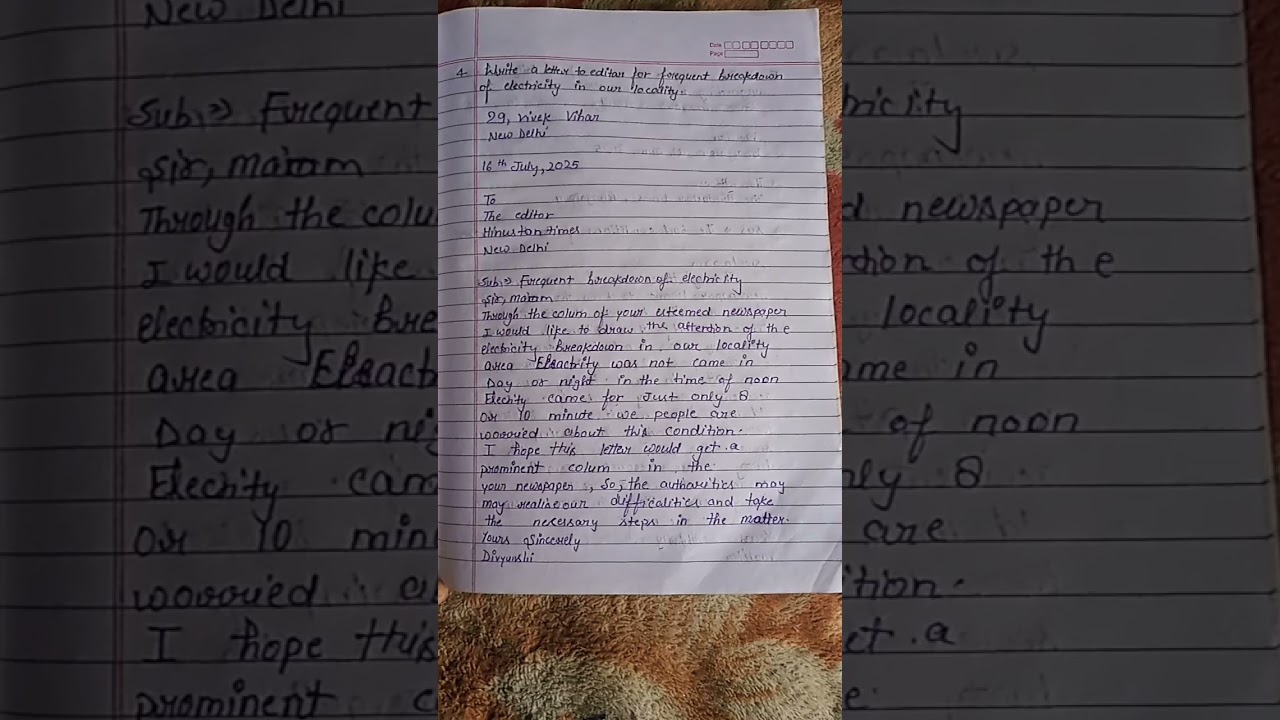 Date
Page
4. Write a letter to editor for forequent breakdown
of electricity in our locality.
29, vivek Vihar
New Delhi
16th July, 2025
To
The editor
Hinustontimes
New Delhi
Sub:⇒ Frequent breakdown of electricity
sir, maiam
Through the colum of your esteemed newspaper
I would like to draw the attention of the
electricity Breakdown in our locality
area Elsactrity was not came in
Day or night in the time of noon
Elechity came for Just only 8
Or 10 minute we people are
wooried about this condition.
I hope this letter would get a
prominent colum in the
your newspaper, So, the autharities may
may realise our difficalities and take
the necessary steps in the matter.
Yours Sincerely
Divyanshi